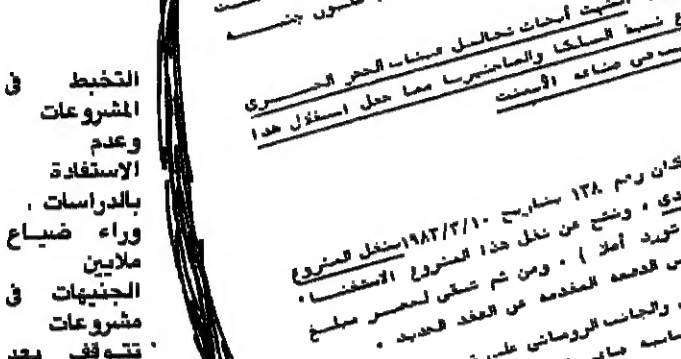 التخبط فى
المشروعات
وعدم
الاستفادة
بالدراسات .
وراء ضياع
ملايين
الجنيهات فى
مشروعات
تتوقف بعد
انتهت أبحاث تحاليل عينات الحجر الجيرى
نسبة السلكا والماغنيزيا مما جعل استغلال هذا
صناعة الأسمنت
رقم ١٣٨ بتاريخ ١٩٨٣/٣/١٠ بنقل المشروع
ونتج عن نقل هذا المشروع الاستغناء
تورد أصلا ) . ومن ثم تبقى لحصر مبلغ
الدفعة المقدمة عن العقد الجديد .
والجانب الرومانى على